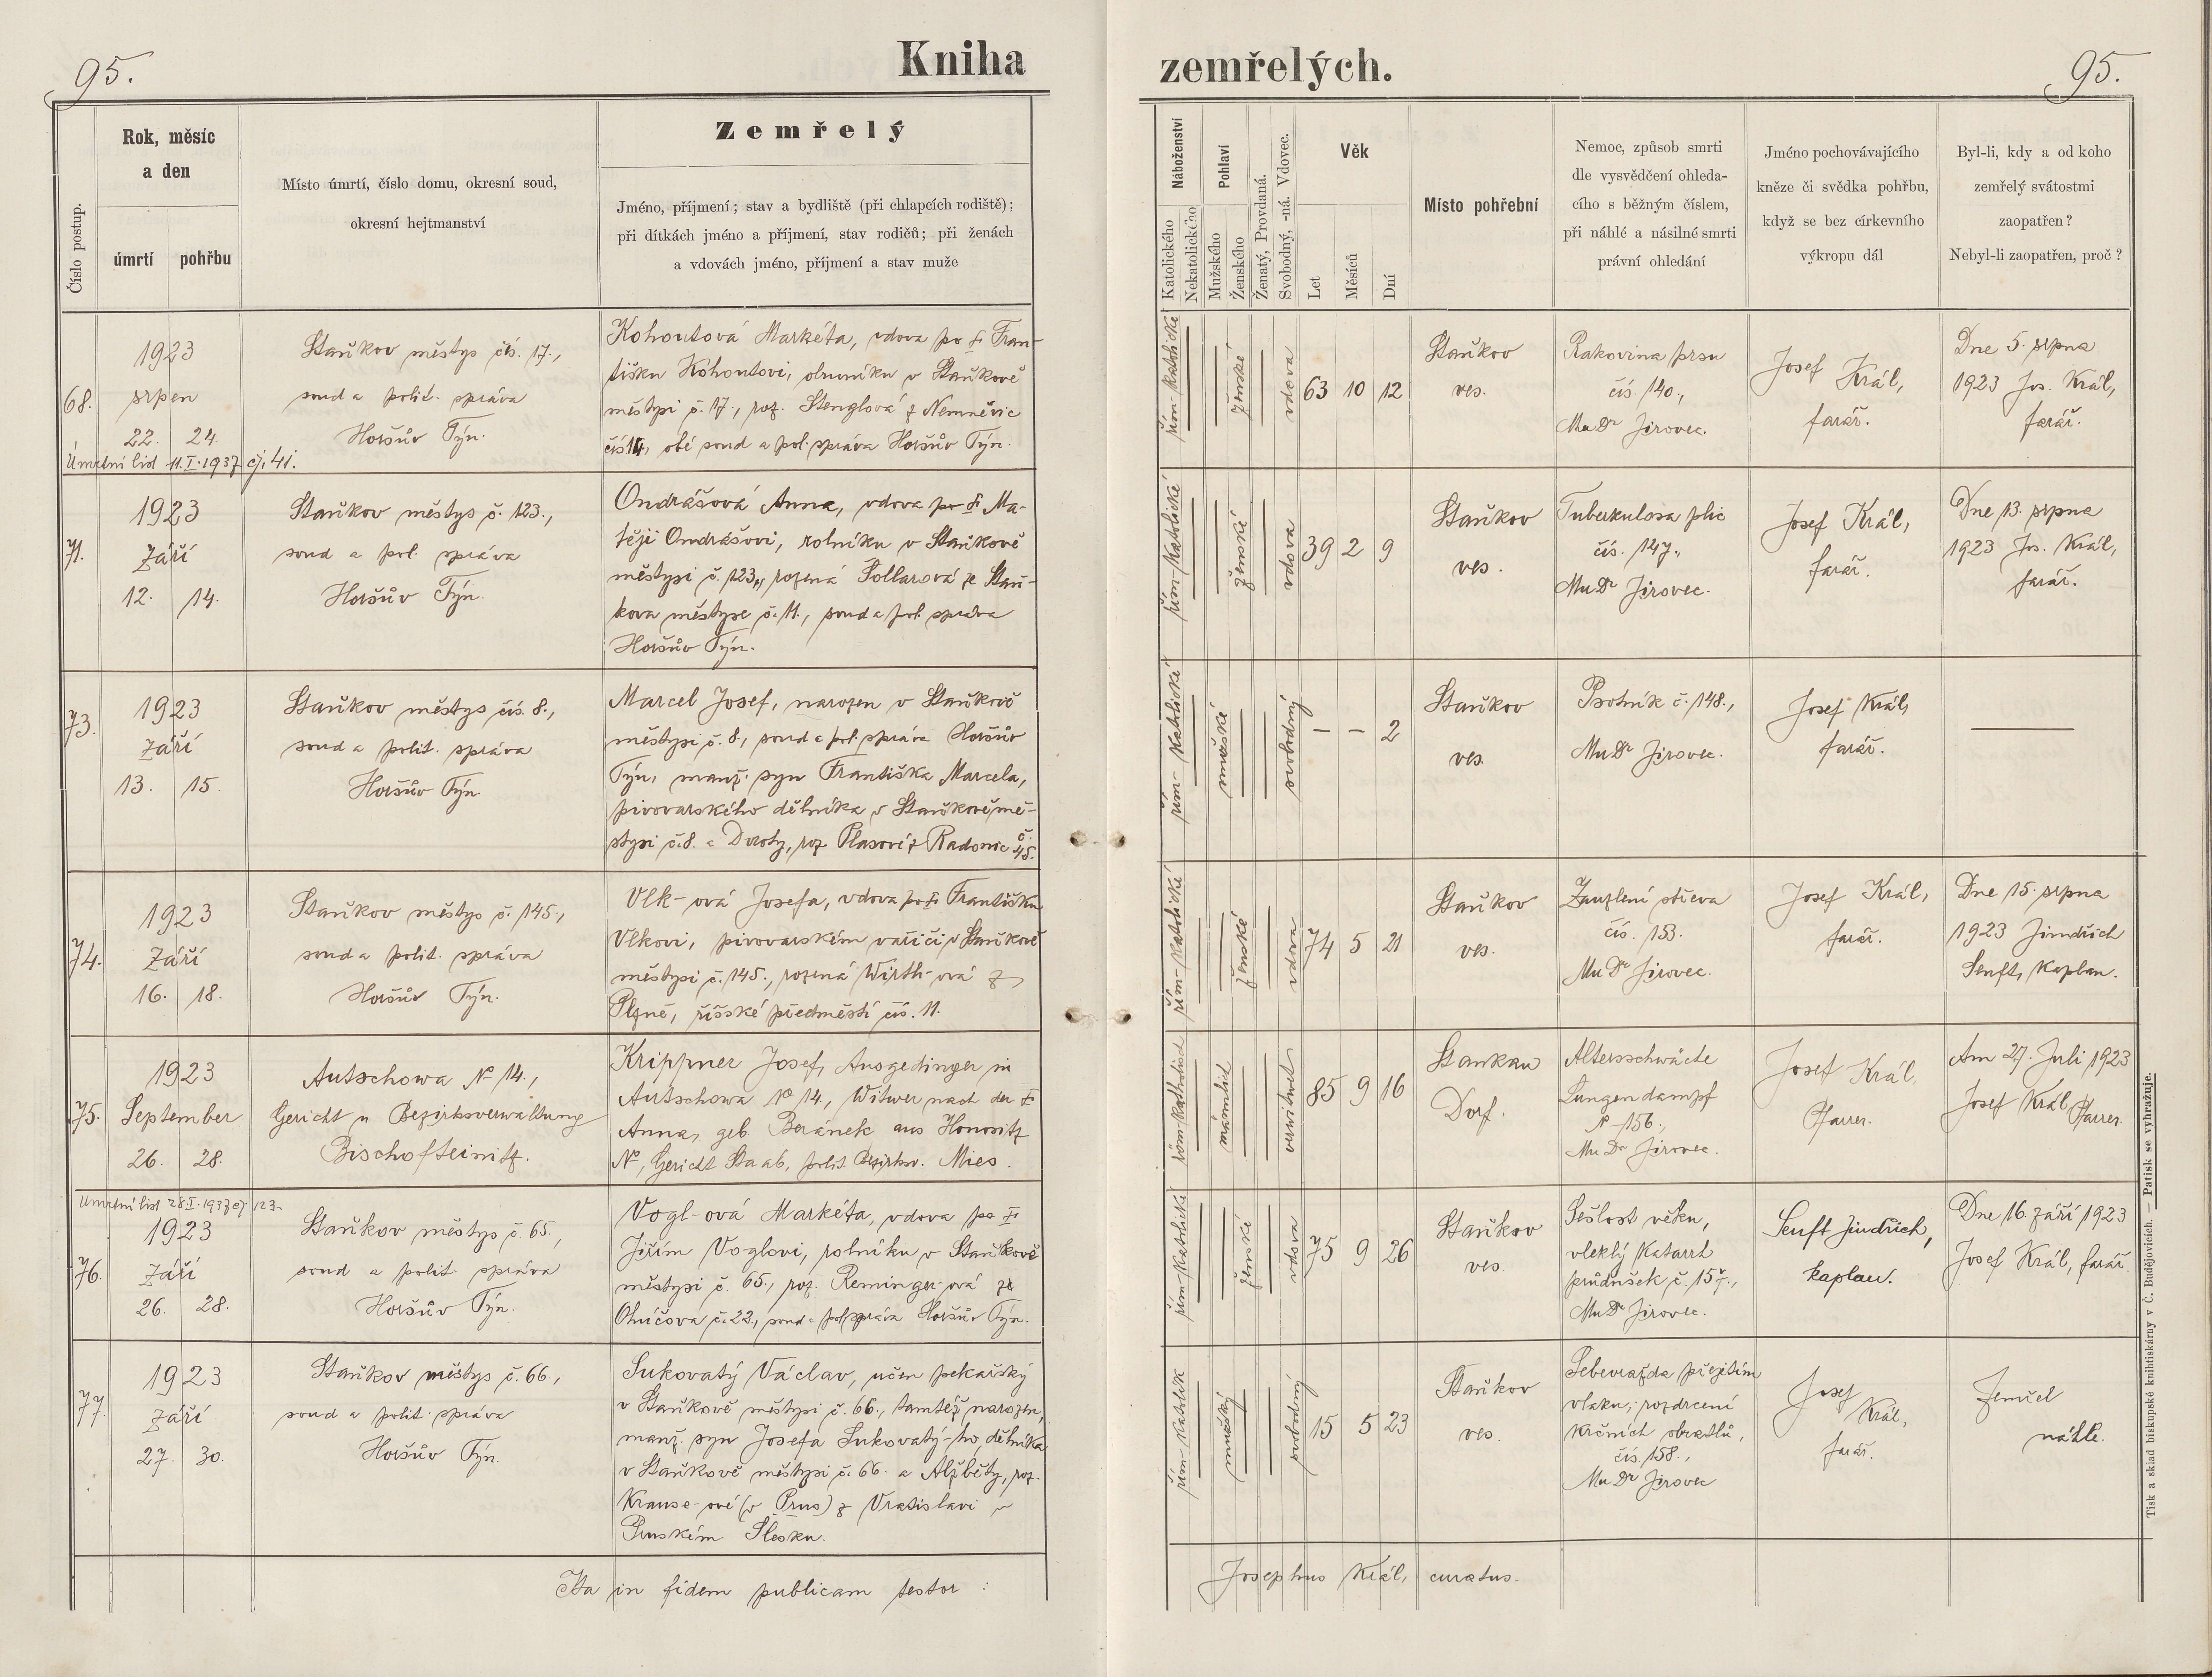 95.
Kniha
zemřelých.
95.
Číslo postup.
Rok, měsíc
a den
úmrtí
pohřbu
Místo úmrtí, číslo domu, okresní soud,
okresní hejtmanství
Zemřelý
Jméno, příjmení; stav a bydliště (při chlapcích rodiště);
při dítkách jméno a příjmení, stav rodičů; při ženách
a vdovách jméno, příjmení a stav muže
Náboženství
Katolického
Nekatolického
Pohlaví
Mužského
Ženského
Ženatý, Provdaná.
Svobodný, -ná. Vdovec.
Věk
Let
Měsíců
Dní
Místo pohřební
Nemoc, způsob smrti
dle vysvědčení ohleda-
cího s běžným číslem,
při náhlé a násilné smrti
právní ohledání
Jméno pochovávajícího
kněze či svědka pohřbu,
když se bez církevního
výkropu dál
Byl-li, kdy a od koho
zemřelý svátostmi
zaopatřen?
Nebyl-li zaopatřen, proč?
68.
1923
srpen
22. 24.
Úmrtní list 11.I.1937 čj. 41.
Staňkov městys čís. 17.,
soud a polit. správa
Horšův Týn.
Kohoutová Markéta, vdova po † Fran-
tišku Kohoutovi, obuvníku v Staňkově
městysi č. 17., roz. Stenglová z Nemněvic
čís. 14, obé soud a pol. správa Horšův Týn.
řím-katolické
ženské
vdova
63 10 12
Staňkov
ves.
Rakovina prsu
čís. 140.,
MuDr Jirovec.
Josef Král,
farář.
Dne 5. srpna
1923 Jos. Král,
farář.
71.
1923
Září
12. 14.
Staňkov městys č. 123.,
soud a pol. správa
Horšův Týn.
Ondrášová Anna, vdova po † Ma-
těji Ondrášovi, rolníku v Staňkově
městysi č. 123., rozená Šollarová ze Staň-
kova městyse č. 11., soud a pol. správa
Horšův Týn.
řím-katolické
ženské
vdova
39 2 9
Staňkov
ves.
Tuberkulosa plic
čís. 147.,
MuDr Jirovec.
Josef Král,
farář.
Dne 13. srpna
1923 Jos. Král,
farář.
73.
1923
Září
13. 15.
Staňkov městys čís. 8.,
soud a polit. správa
Horšův Týn.
Marcel Josef, narozen v Staňkově
městysi č. 8., soud a pol. správa Horšův
Týn, manž. syn Františka Marcela,
pivovarského dělníka v Staňkově mě-
stysi č. 8. a Doroty, roz. Plasové z Radonic č. 45.
řím-katolické
mužské
svobodný
— — 2
Staňkov
ves.
Psotník č. 148.,
MuDr Jirovec.
Josef Král,
farář.
—
74.
1923
Září
16. 18.
Staňkov městys č. 145.,
soud a polit. správa
Horšův Týn.
Vlk-ová Josefa, vdova po † Františku
Vlkovi, pivovarském vařiči v Staňkově
městysi č. 145., rozená Wirth-ová z
Plzně, říšské předměstí čís. 11.
řím-katolické
ženské
vdova
74 5 21
Staňkov
ves.
Zauzlení střeva
čís. 153.
MuDr Jirovec.
Josef Král,
farář.
Dne 15. srpna
1923 Jindřich
Senft, kaplan.
75.
1923
September
26. 28.
Autschowa No 14.,
Gericht u Bezirksverwaltung
Bischofteinitz.
Krippner Josef, Ausgedinger in
Autschowa No 14., Witwer nach der †
Anna, geb. Beránek aus Honositz
No, Gericht Staab, polit. Bezirksv. Mies.
röm-katholisch
männlich
verwitwet
85 9 16
Stankau
Dorf.
Altersschwäche
Lungendampf
No 156.,
MuDr Jirovec.
Josef Král,
Pfarrer.
Am 27. Juli 1923
Josef Král, Pfarrer.
Úmrtní list 28.I.1937 čj 123.
76.
1923
Září
26. 28.
Staňkov městys č. 65.,
soud a polit. správa
Horšův Týn.
Vogl-ová Markéta, vdova po †
Jiřím Voglovi, rolníku v Staňkově
městysi č. 65., roz. Reminger-ová ze
Ohúčova č. 22., soud a pol. správa Horšův Týn.
řím-katolické
ženské
vdova
75 9 26
Staňkov
ves.
Sešlost věku,
vleklý katarrh
průdušek č. 157.,
MuDr Jirovec.
Senft Jindřich,
kaplan.
Dne 16. září 1923
Josef Král, farář.
77.
1923
Září
27. 30.
Staňkov městys č. 66.,
soud a polit. správa
Horšův Týn.
Sukovatý Václav, učen pekařský
v Staňkově městysi č. 66., tamtéž narozen,
manž. syn Josefa Sukovatý-ho, dělníka
v Staňkově městysi č. 66. a Alžběty, roz.
Krause-ové (v Prus) z Vratislavi v
Pruském Slesku.
řím-katolík
mužský
svobodný
15 5 23
Staňkov
ves.
Sebevražda přejetím
vlaku, rozdrcení
krčních obratlů,
čís. 158.,
MuDr Jirovec
Josef
Král,
farář.
Zemřel
náhle.
Ita in fidem publicam testor:
Josephus Král, curatus.
Tisk a sklad biskupské knihtiskárny v Č. Budějovicích. — Patisk se vyhražuje.